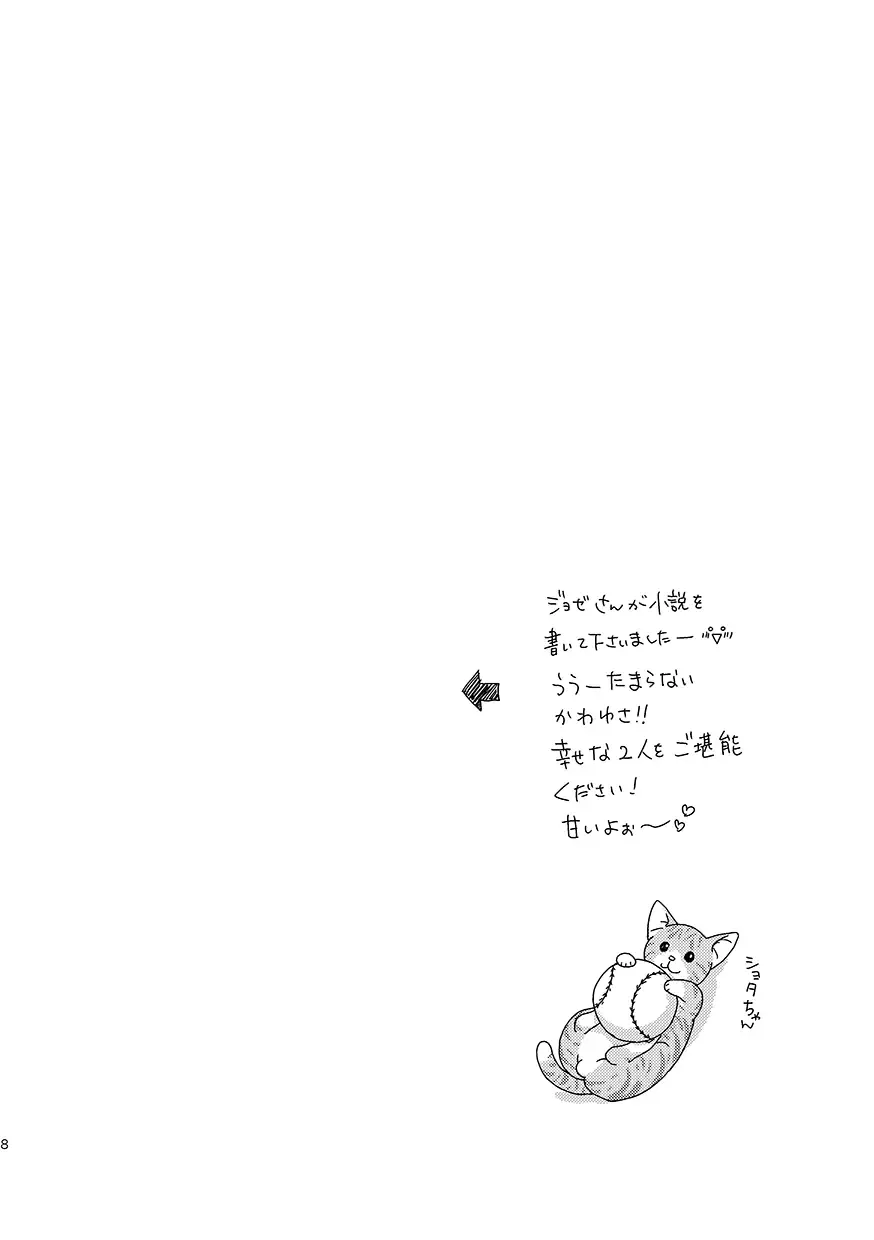 ジョゼさんが小説を
書いて下さいましたー
ううーたまらない
かわゆさ!!
幸せな2人をご堪能
ください!
甘いよぉ〜♡♡
ショタちゃん
8